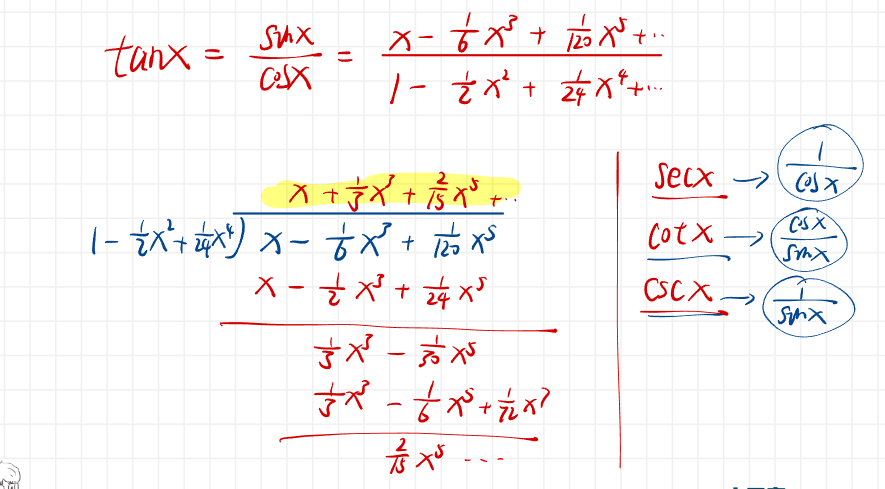 tanx = sinx/cosx = (x - 1/6 x³ + 1/120 x⁵ + ..)/(1 - 1/2 x² + 1/24 x⁴ + ...)
x + 1/3 x³ + 2/15 x⁵ + ..
1 - 1/2 x² + 1/24 x⁴ ) x - 1/6 x³ + 1/120 x⁵
x - 1/2 x³ + 1/24 x⁵
1/3 x³ - 1/30 x⁵
1/3 x³ - 1/6 x⁵ + 1/72 x⁷
2/15 x⁵ ...
secx → 1/cosx
cotx → cosx/sinx
cscx → 1/sinx